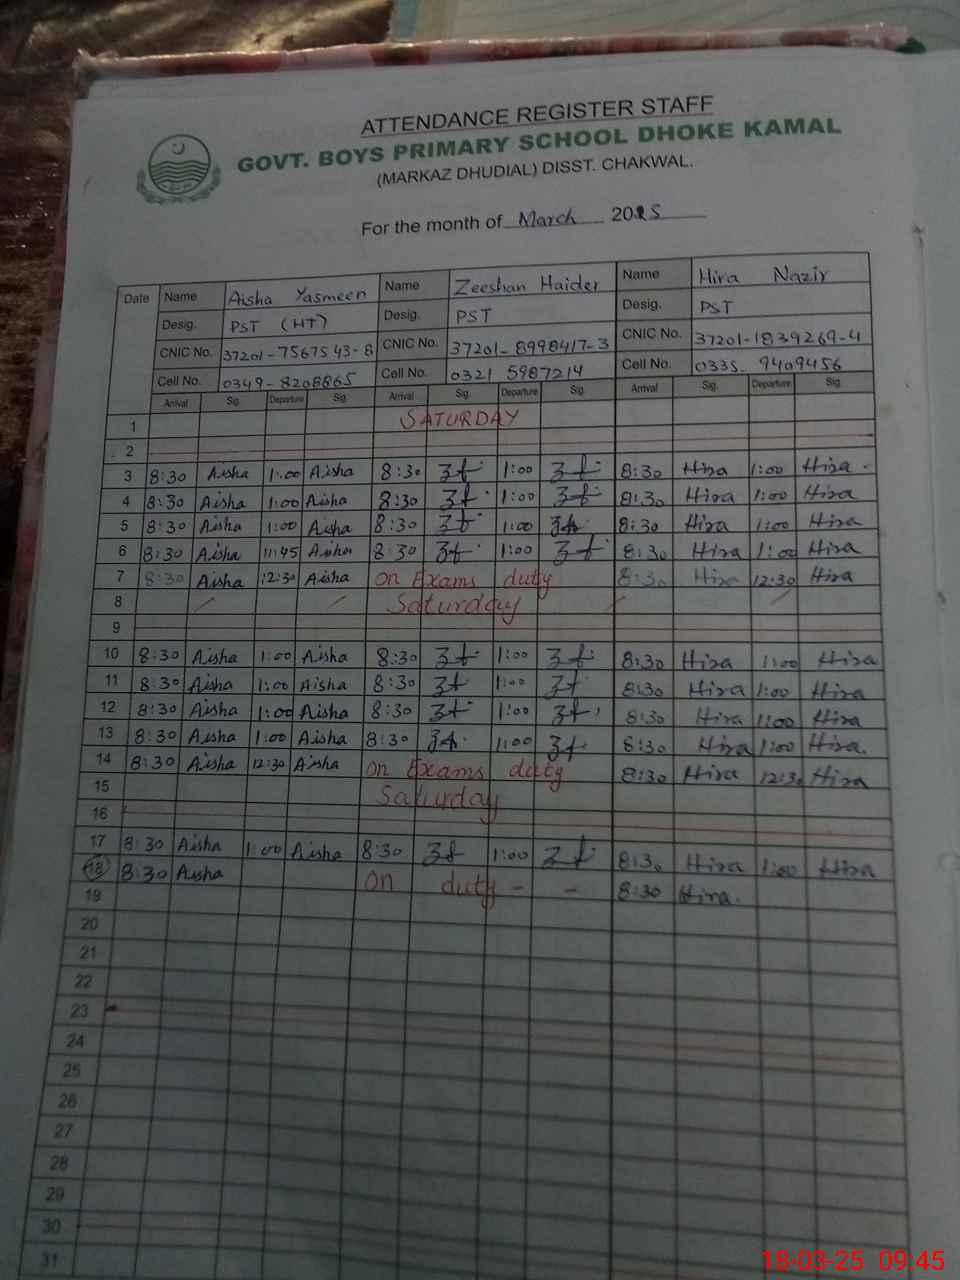 ATTENDANCE REGISTER STAFF
GOVT. BOYS PRIMARY SCHOOL DHOKE KAMAL
(MARKAZ DHUDIAL) DISST. CHAKWAL.
For the month of March 2025
Date Name Aisha Yasmeen Name Zeeshan Haider Name Hira Nazir
Desig. PST (HT) Desig. PST Desig. PST
CNIC No. 37201-7567543-8 CNIC No. 37201-8998417-3 CNIC No. 37201-1839269-4
Cell No. 0349-8208865 Cell No. 0321 5987214 Cell No. 0335-9409456
Arrival Sig. Departure Sig. Arrival Sig. Departure Sig. Arrival Sig. Departure Sig.
1 SATURDAY
2
3 8:30 Aisha 1:00 Aisha 8:30 1:00 8:30 Hira 1:00 Hira
4 8:30 Aisha 1:00 Aisha 8:30 1:00 8:30 Hira 1:00 Hira
5 8:30 Aisha 1:00 Aisha 8:30 1:00 8:30 Hira 1:00 Hira
6 8:30 Aisha 11:45 Aisha 8:30 1:00 8:30 Hira 1:00 Hira
7 8:30 Aisha 12:30 Aisha on Exams duty 8:30 Hira 12:30 Hira
8 Saturday
9
10 8:30 Aisha 1:00 Aisha 8:30 1:00 8:30 Hira 1:00 Hira
11 8:30 Aisha 1:00 Aisha 8:30 1:00 8:30 Hira 1:00 Hira
12 8:30 Aisha 1:00 Aisha 8:30 1:00 8:30 Hira 1:00 Hira
13 8:30 Aisha 1:00 Aisha 8:30 1:00 8:30 Hira 1:00 Hira.
14 8:30 Aisha 12:30 Aisha on Exams duty 8:30 Hira 12:30 Hira
15 Saturday
16
17 8:30 Aisha 1:00 Aisha 8:30 1:00 8:30 Hira 1:00 Hira
18 8:30 Aisha on duty - - 8:30 Hira.
19
20
21
22
23
24
25
26
27
28
29
30
31
18-03-25 09:45